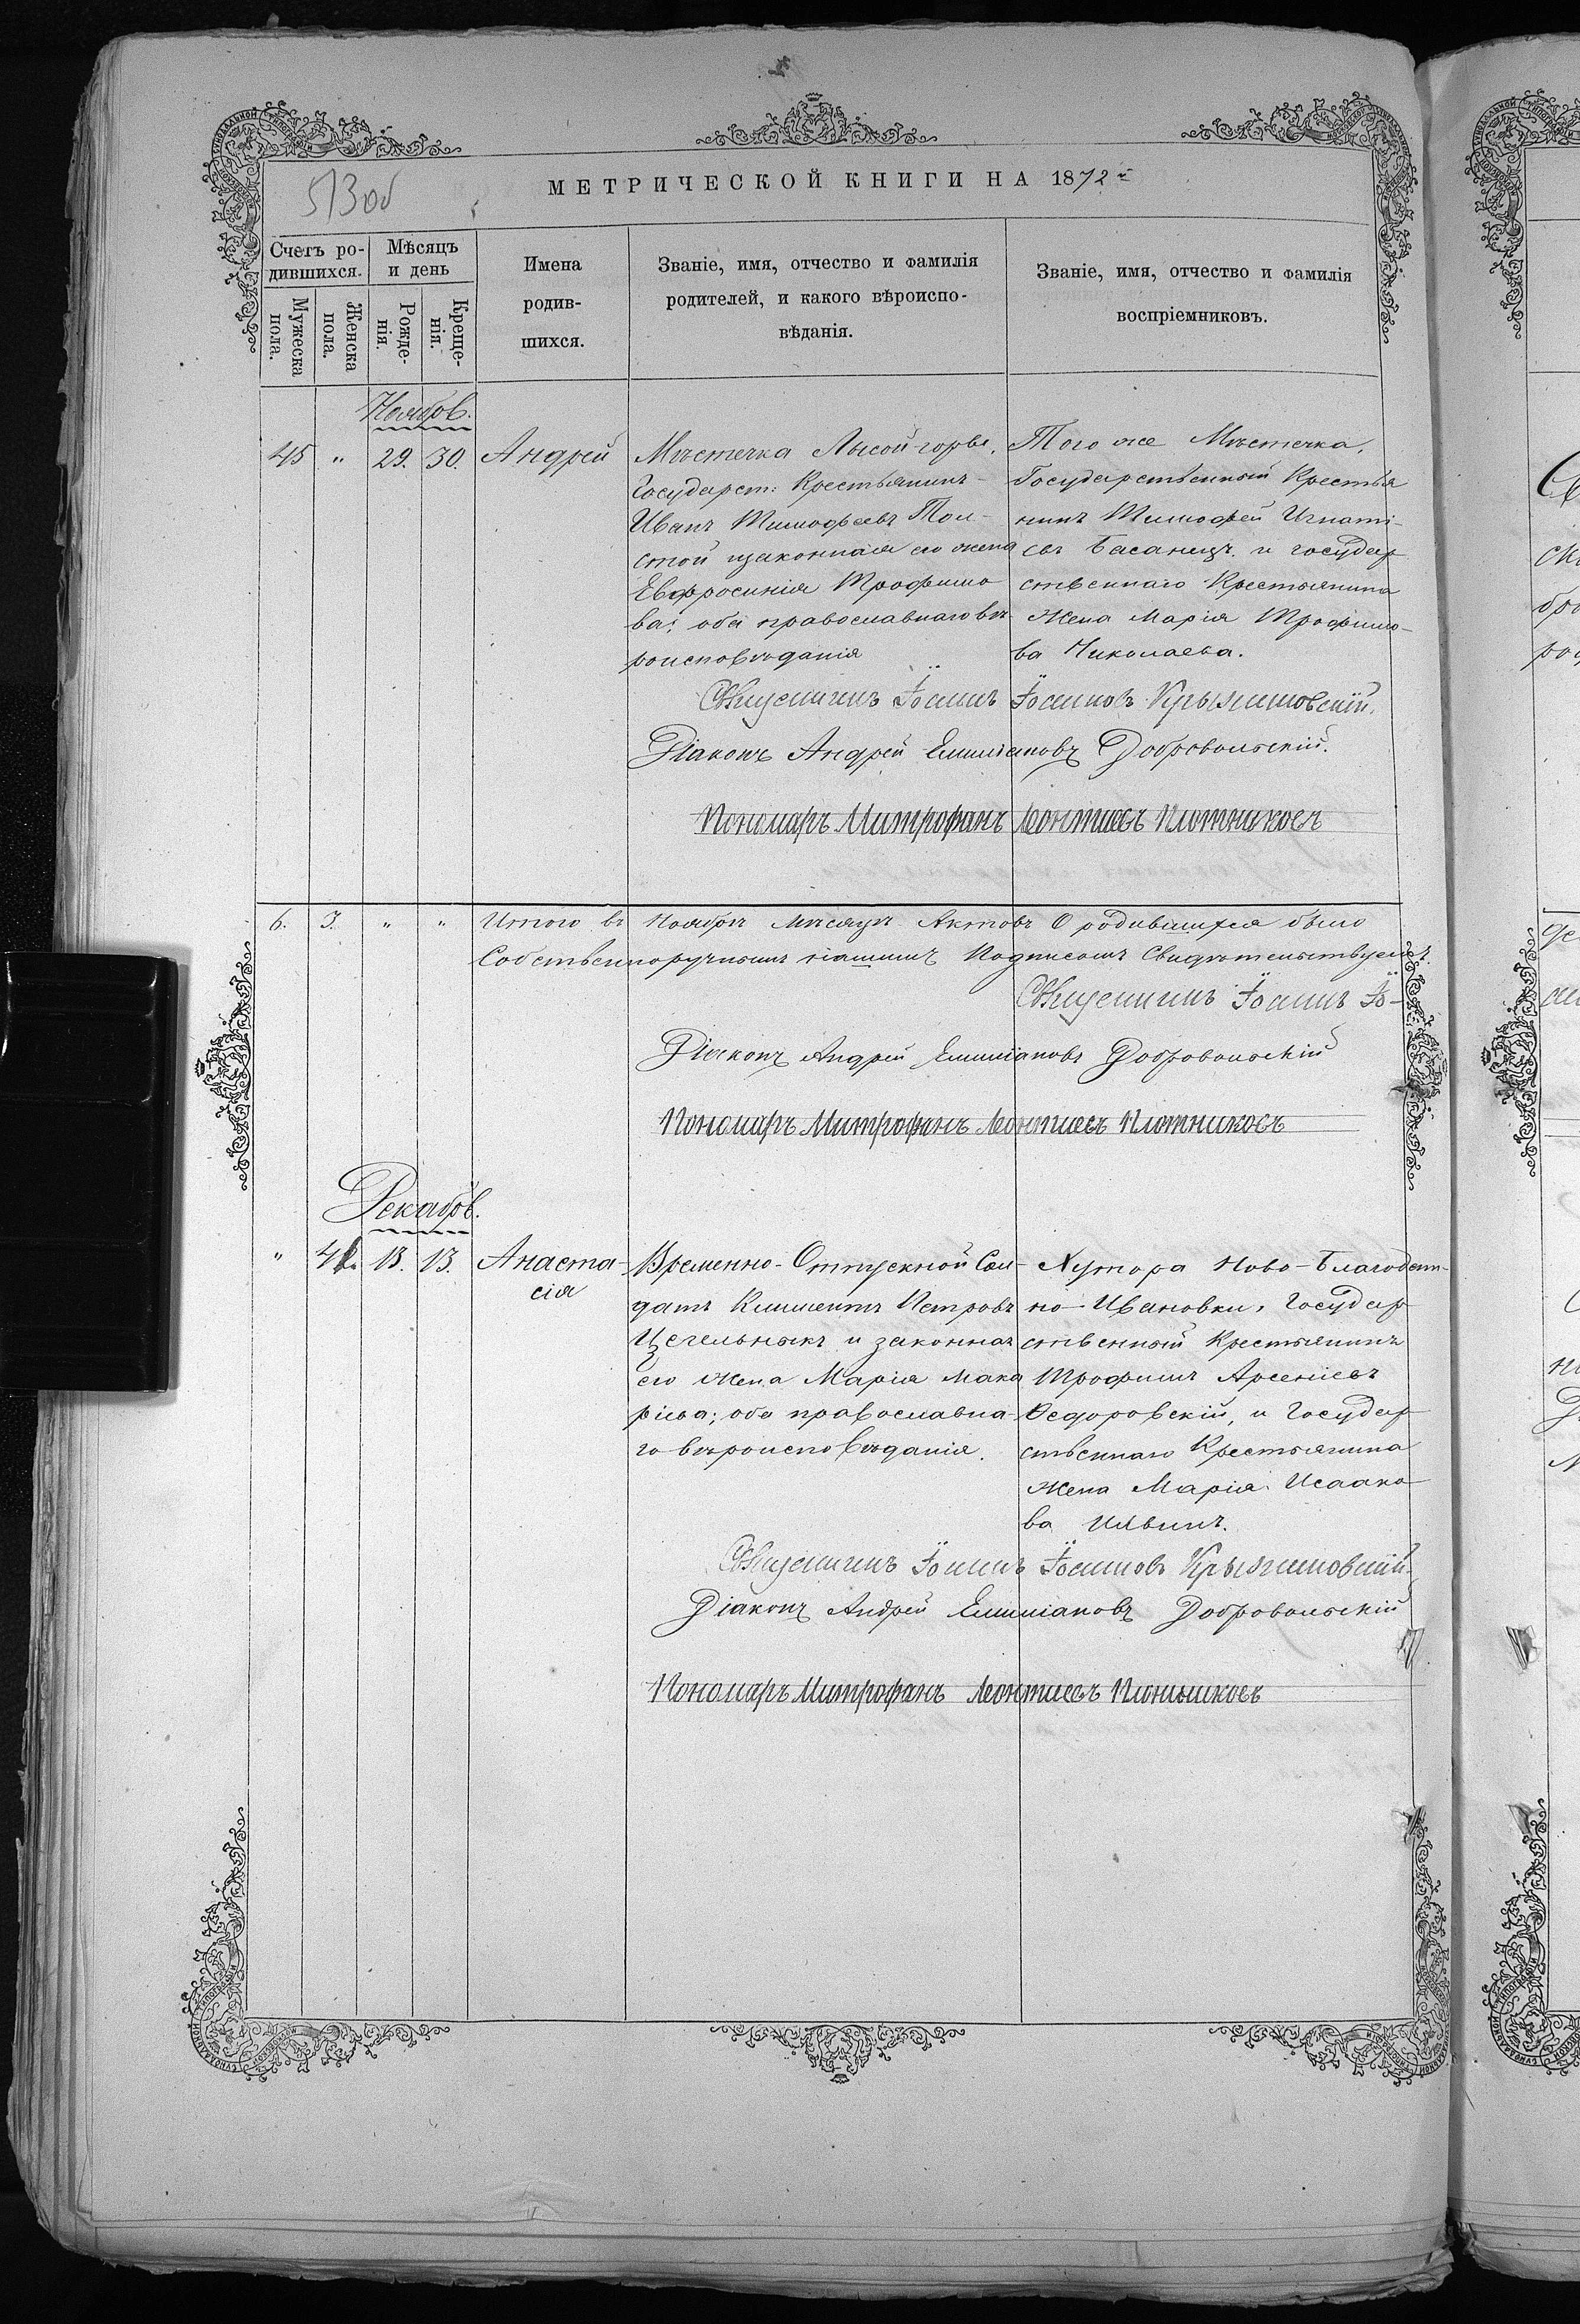 513об
МЕТРИЧЕСКОЙ КНИГИ НА 1872й
Счетъ ро-
дившихся.
Мужеска пола.
Женска пола.
Мѣсяцъ
и день
Рожде-
нія.
Креще-
нія.
Имена
родив-
шихся.
Званіе, имя, отчество и фамилія
родителей, и какого вѣроиспо-
вѣданія.
Званіе, имя, отчество и фамилія
воспріемниковъ.
Ноябрь.
45 " 29. 30. Андрей
Мѣстечка Лысой-горы,
Государст: Крестьянинъ
Иванъ Тимофеевъ Тол-
стой изаконная его жена
Евфросинія Трофимо
ва; оба православнаго вѣ-
роисповѣданія
Того же Мѣстечка,
Государственный Крестья
нинъ Тимофей Игнаті-
евъ Басанецъ. и государ
ственнаго Крестьянина
Жена Марія Трофимо-
ва Николаева.
Священникъ Іоаннъ Іоанновъ Крыжановскій.
Діаконъ Андрей Емиліановъ Добровольскій.
Пономарь Митрофанъ Леонтіевъ Плотниковъ
6. 3. " " Итого въ Ноябрѣ мѣсяцѣ Актовъ О родившихся было
Собственноручнымъ нашимъ Подписомъ Свидѣтельствуемъ.
Священникъ Іоаннъ Іо-
Діаконъ Андрей Емиліановъ Добровольскій
Пономарь Митрофанъ Леонтіевъ Плотниковъ
Декабрь.
" 42. 13. 13. Анаста-
сія
Временно-Отпускной Сол-
датъ Климентъ Петровъ
Цегельныкъ и законная
его жена Марія Мака
ріева; оба православна-
го вѣроисповѣданія.
Хутора Ново-Благодат-
но-Ивановки, Государ
ственный Крестьянинъ
Трофимъ Арсеніевъ
Ѳедоровскій, и Государ
ственнаго Крестьянина
жена Марія Исаако
ва Ильинъ.
Священникъ Іоаннъ Іоанновъ Крыжановскій.
Діаконъ Андрей Емиліановъ Добровольскій
Пономарь Митрофанъ Леонтіевъ Плотниковъ